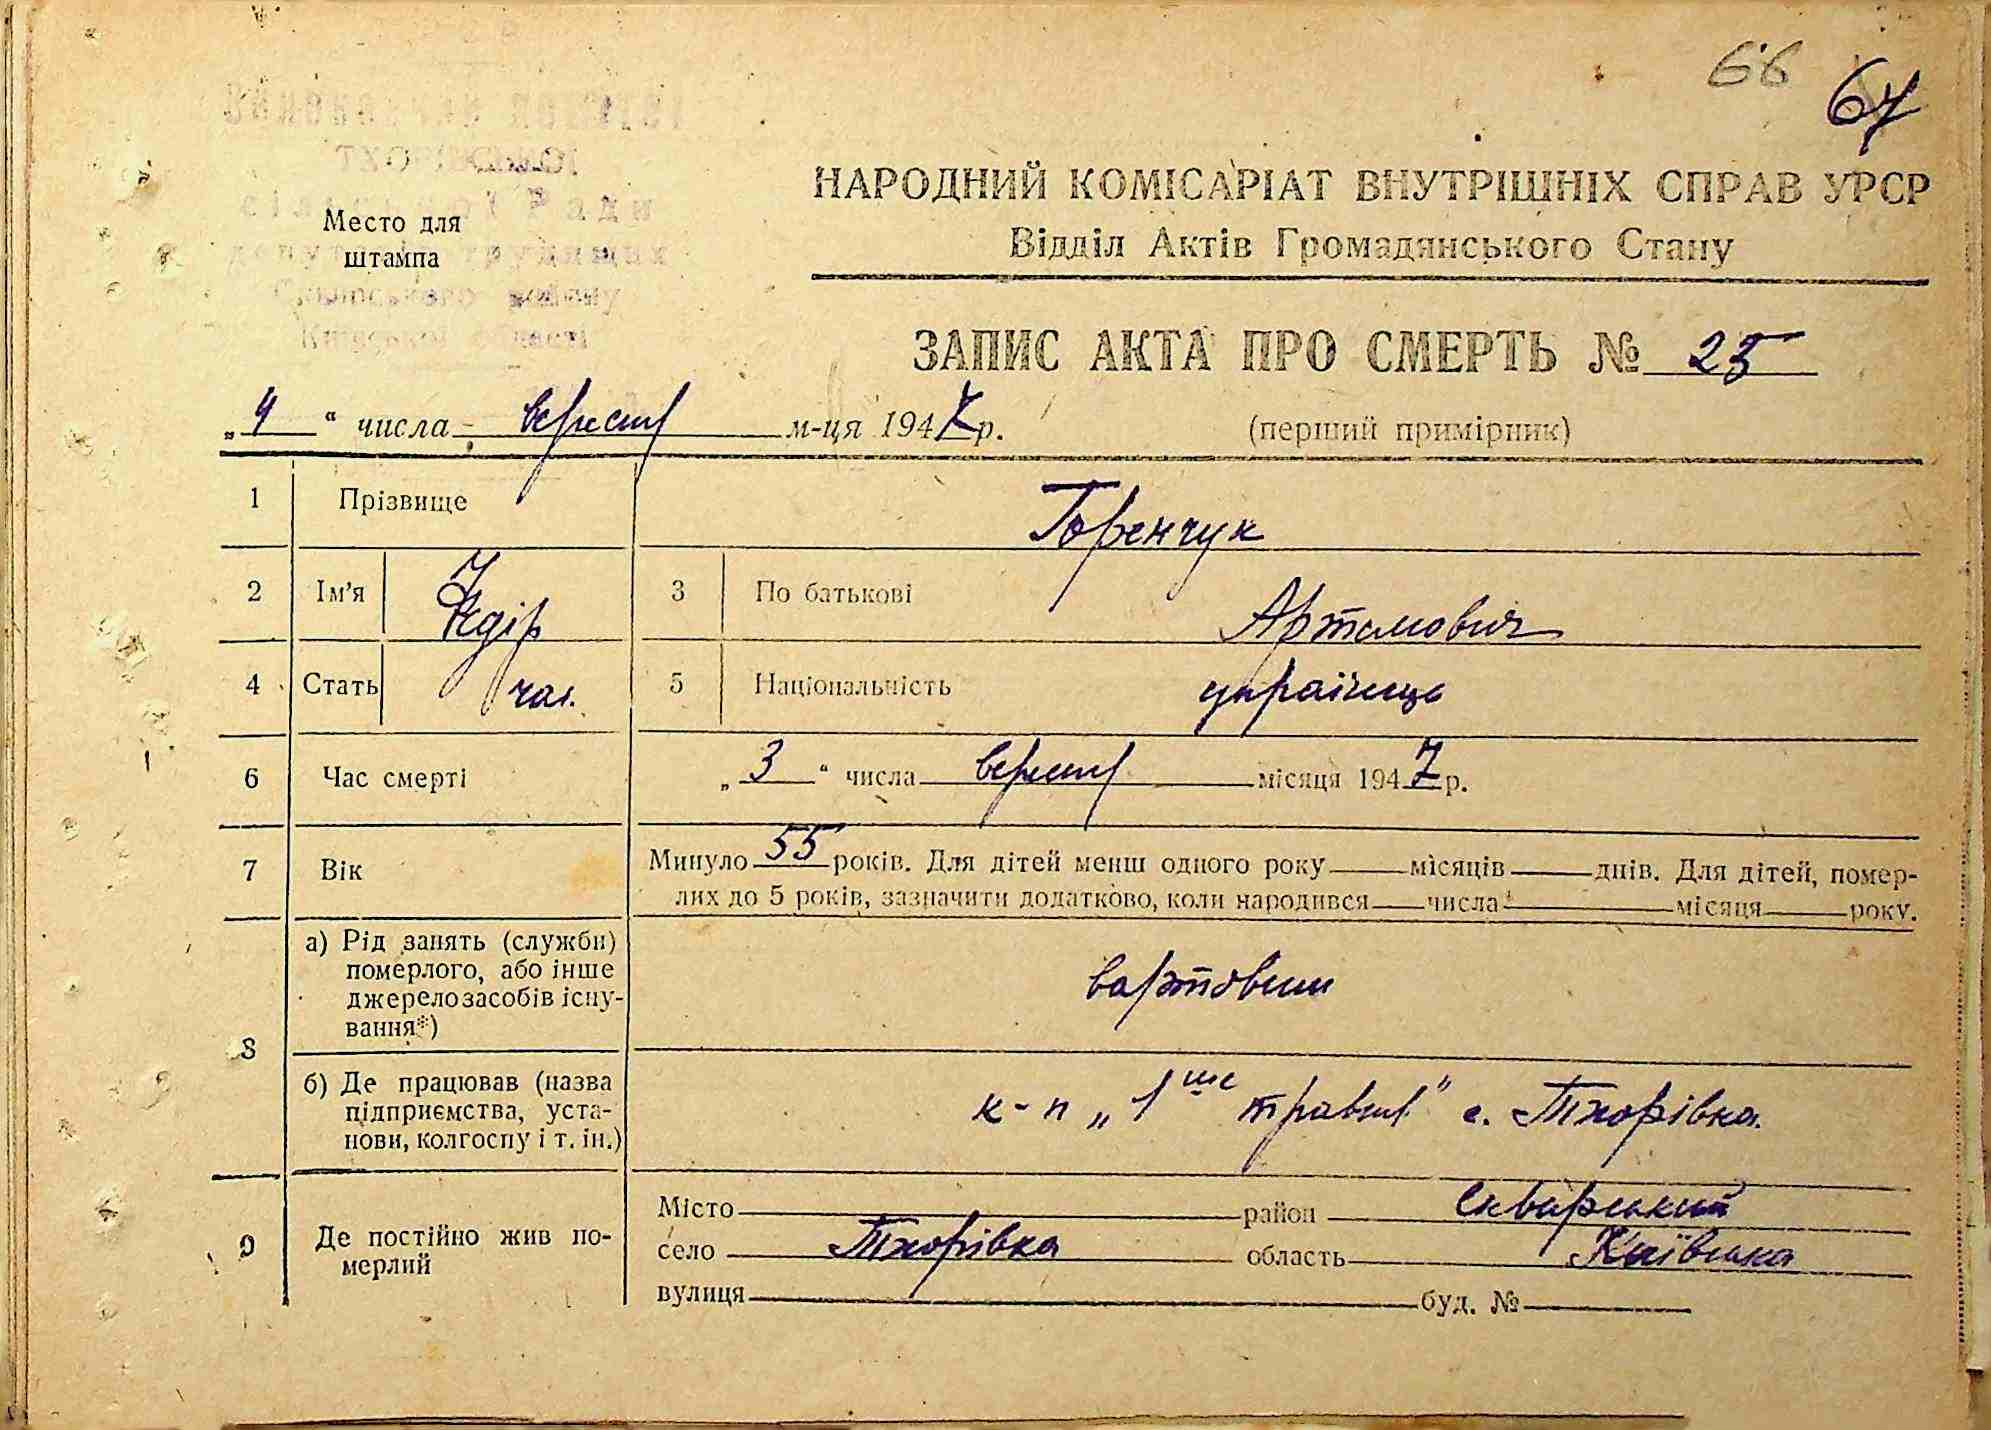 66
67
Виконавчий комітет
Тхорівської
сільської Ради
депутатів трудящих
Сквирського району
Київської області
Место для
штампа
НАРОДНИЙ КОМІСАРІАТ ВНУТРІШНІХ СПРАВ УРСР
Відділ Актів Громадянського Стану
ЗАПИС АКТА ПРО СМЕРТЬ № 25
„4“ числа вересня м-ця 1947 р. (перший примірник)
1 Прізвище Горенчук
2 Ім'я Хфдір 3 По батькові Артемович
4 Стать чол. 5 Національність українець
6 Час смерті „3“ числа вересня місяця 1947 р.
7 Вік Минуло 55 років. Для дітей менш одного року місяців днів. Для дітей, помер-
лих до 5 років, зазначити додатково, коли народився числа місяця року.
8 а) Рід занять (служби)
померлого, або інше
джерело засобів існу-
вання*)
вартовим
б) Де працював (назва
підприємства, уста-
нови, колгоспу і т. ін.)
к-п „1ше травня" с. Тхорівка.
9 Де постійно жив по-
мерлий
Місто район Сквирський
село Тхорівка область Київська
вулиця буд. №